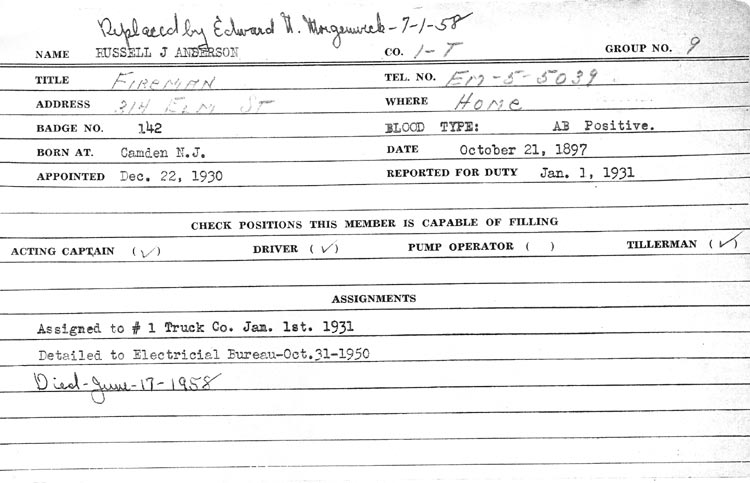 Replaced by Edward W. Morgenweck-7-1-58
NAME RUSSELL J ANDERSON CO. 1-T GROUP NO. 9
TITLE FIREMAN TEL. NO. EM-5-5039
ADDRESS 314 ELM ST WHERE Home
BADGE NO. 142 BLOOD TYPE: AB Positive.
BORN AT. Camden N.J. DATE October 21, 1897
APPOINTED Dec. 22, 1930 REPORTED FOR DUTY Jan. 1, 1931
CHECK POSITIONS THIS MEMBER IS CAPABLE OF FILLING
ACTING CAPTAIN (✓) DRIVER (✓) PUMP OPERATOR ( ) TILLERMAN (✓)
ASSIGNMENTS
Assigned to # 1 Truck Co. Jan. 1st. 1931
Detailed to Electricial Bureau-Oct.31-1950
Died-June-17-1958